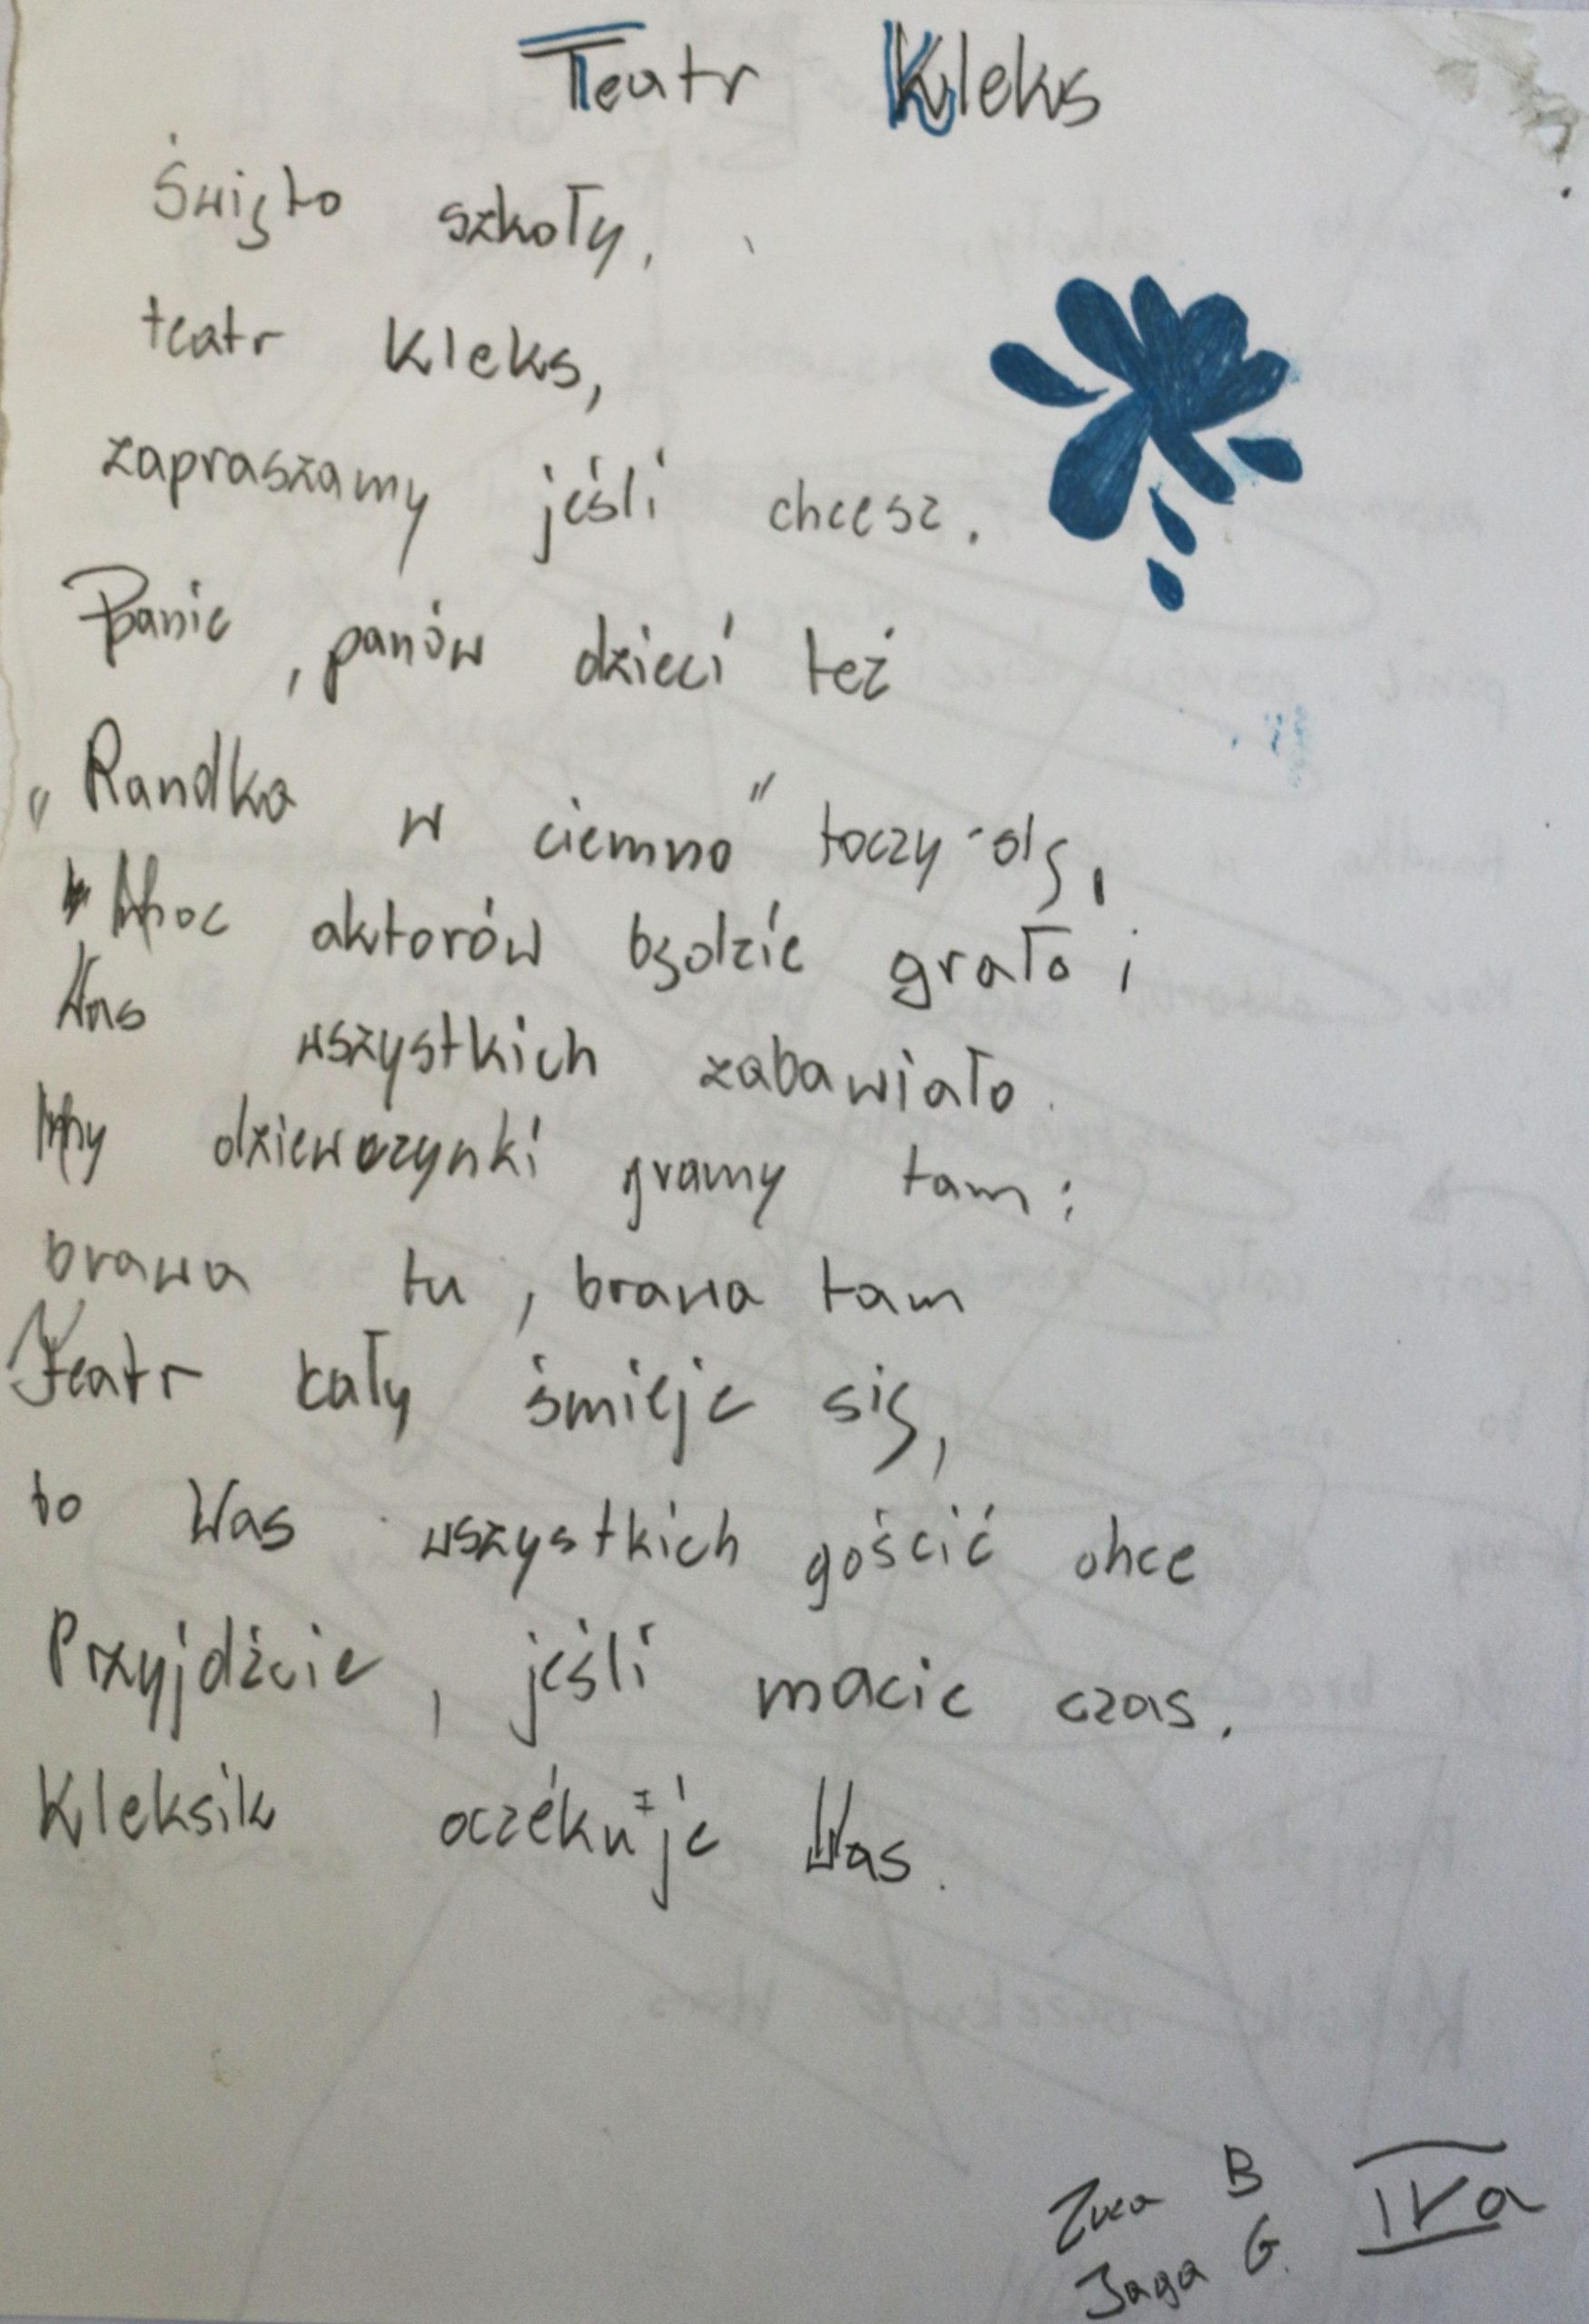 Teatr Kleks
Święto szkoły,
teatr Kleks,
zapraszamy jeśli chcesz.
Panie, panów dzieci też
„Randka w ciemno" toczy się,
Moc aktorów będzie grało i
Was wszystkich zabawiało.
My dziewczynki gramy tam:
brawa tu, brawa tam
Teatr cały śmieje się,
to Was wszystkich gościć chce
Przyjdźcie, jeśli macie czas.
Kleksik oczekuje Was.
B IVa
Jaga G.